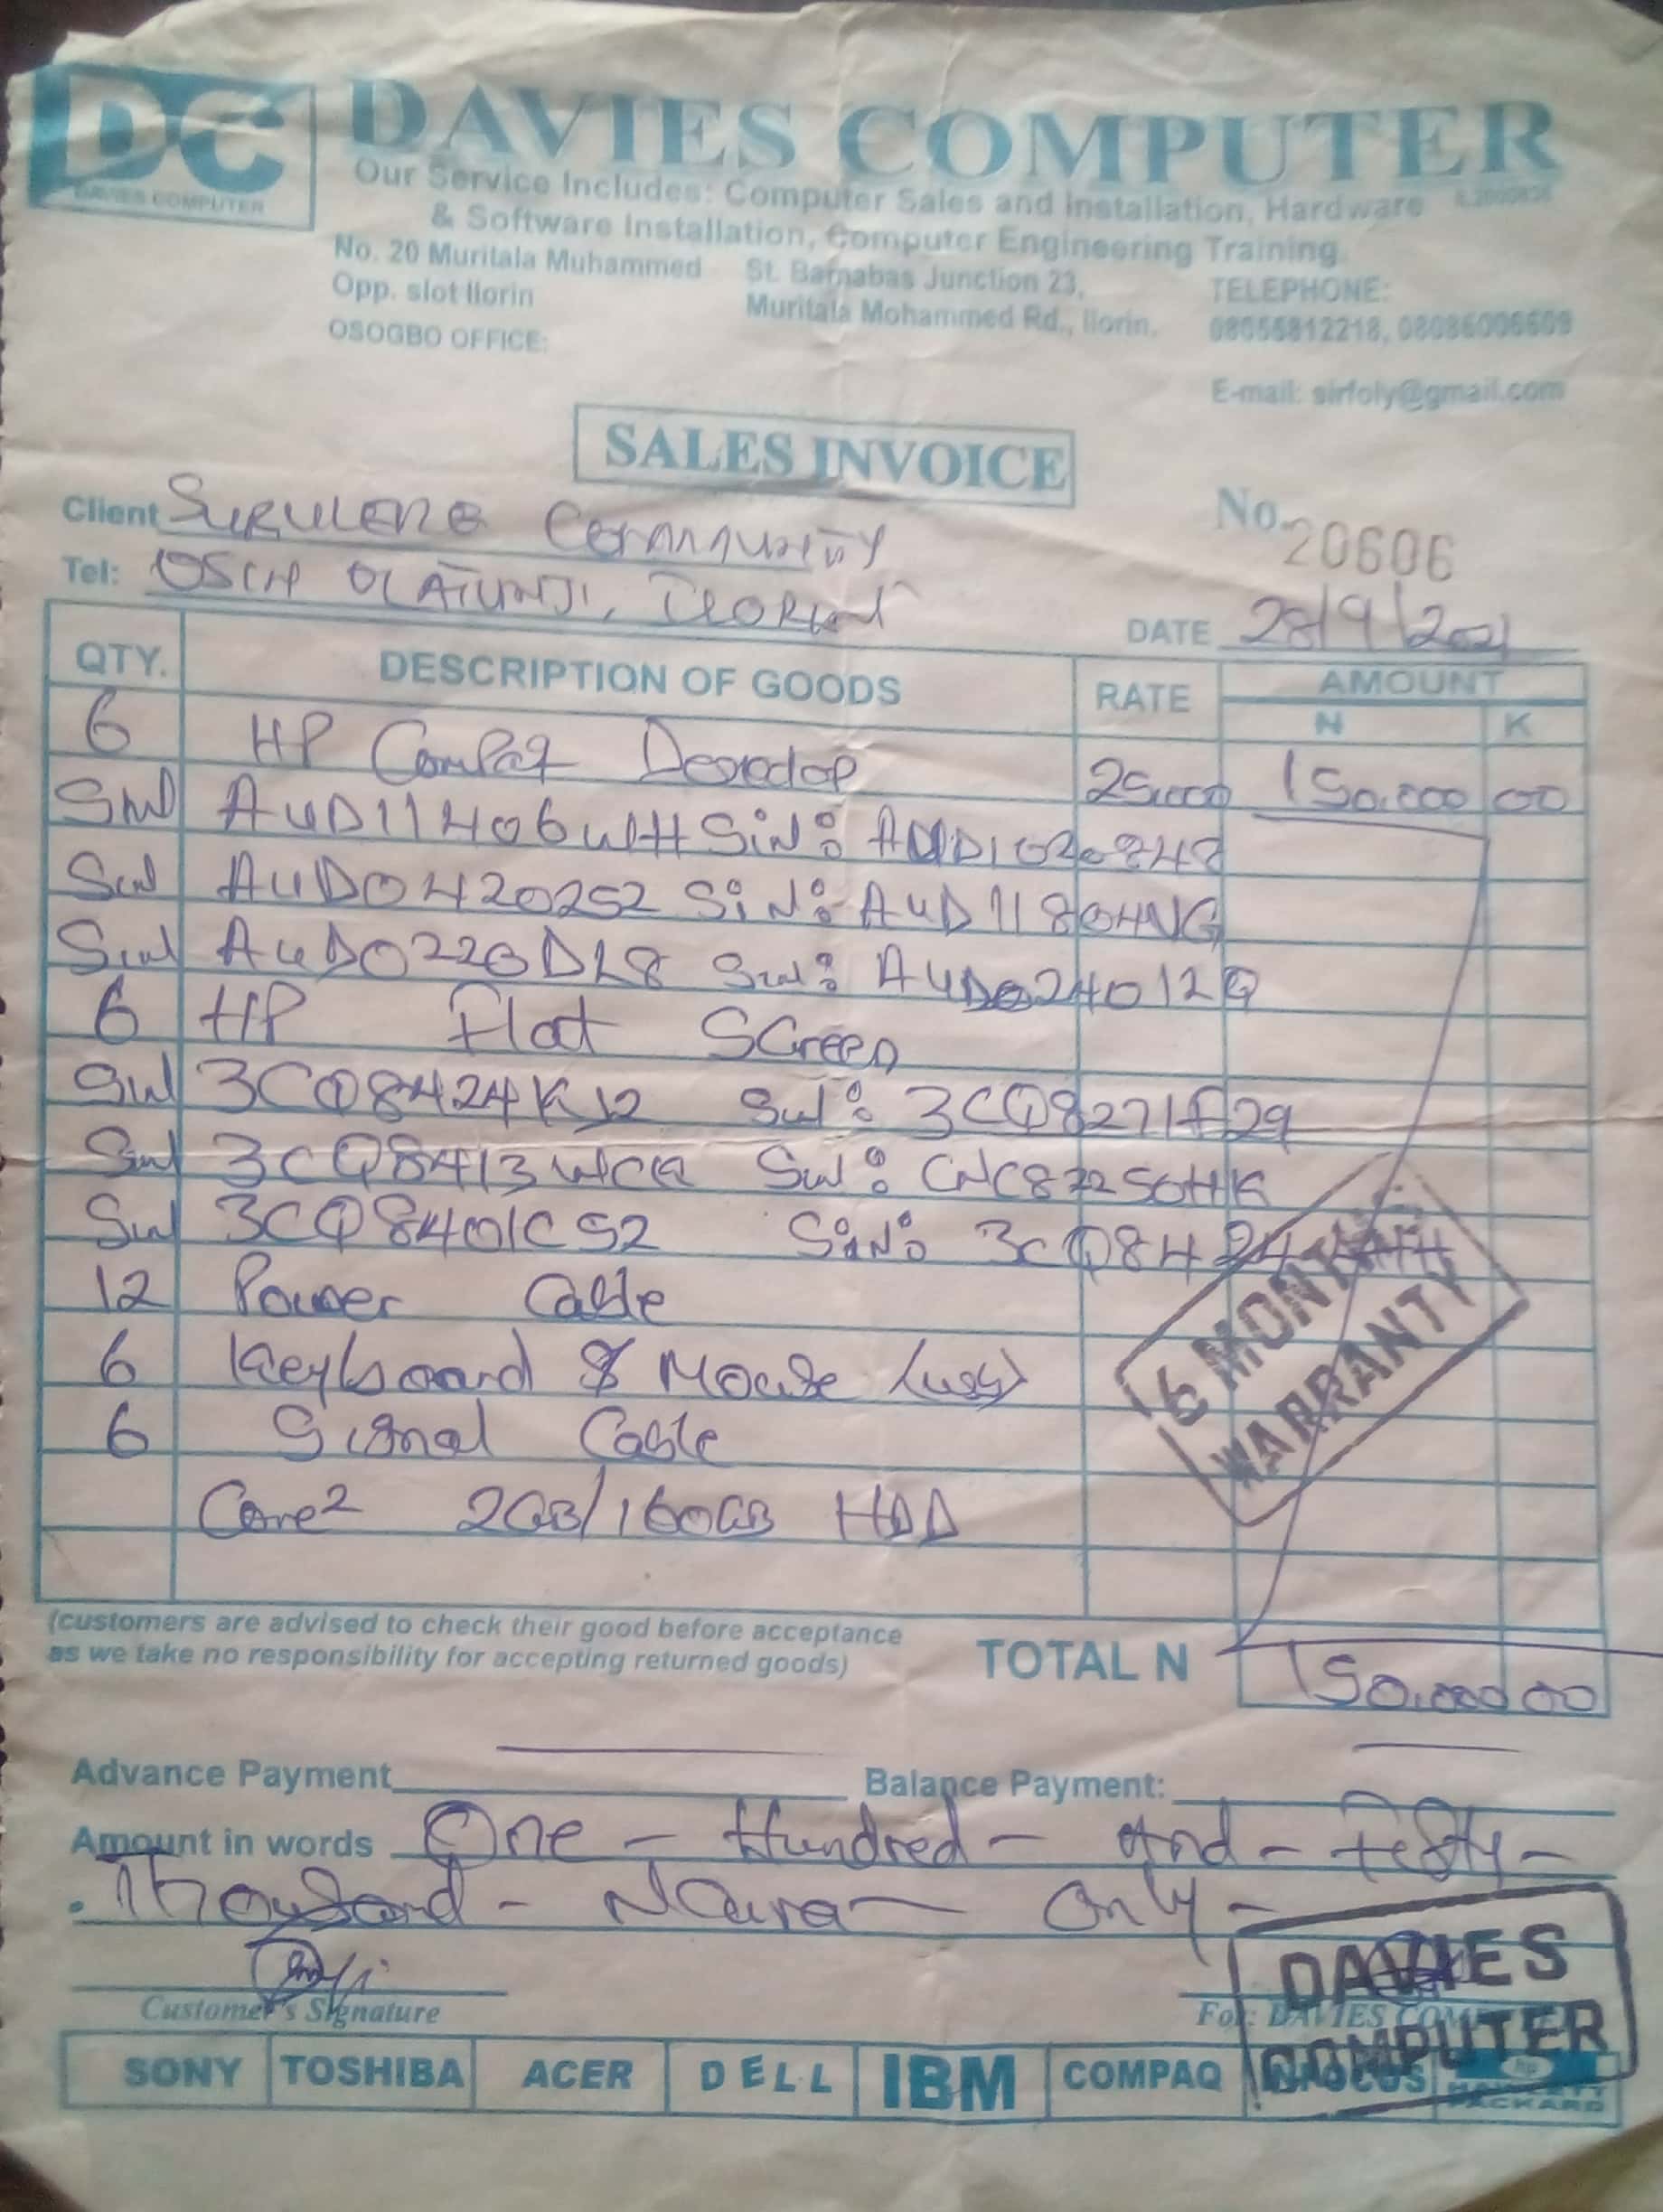 DC DAVIES COMPUTER
DAVIES COMPUTER
Our Service Includes: Computer Sales and Installation, Hardware
& Software Installation, Computer Engineering Training.
No. 20 Muritala Muhammed
Opp. slot Ilorin
OSOGBO OFFICE:
St. Barnabas Junction 23,
Muritala Mohammed Rd., Ilorin.
TELEPHONE:
08055812218, 08086006609
E-mail: sirfoly@gmail.com
SALES INVOICE
Client SURULERE COMMUNITY
No. 20606
Tel: OLATUNJI, ILORIN
DATE 28/9/2021
QTY. DESCRIPTION OF GOODS RATE AMOUNT
N K
6 HP Compaq 25,000 150,000 00
S/N AUD11406WH S/N: 
S/N AUD0420252 S/N: AUD11804NG
S/N S/N: AUD024012Q
6 HP Flat Screen
S/N S/N: 3CQ8271F29
S/N 3CQ8413WCQ S/N:
S/N 3CQ8401CS2 S/N:
12 Power Cable
6 Keyboard & Mouse (USB)
6 Signal Cable
Core2 2GB/160GB HDD
6 MONTHS
WARRANTY
(customers are advised to check their good before acceptance
as we take no responsibility for accepting returned goods)
TOTAL N 150,000 00
Advance Payment Balance Payment:
Amount in words One - Hundred - And - Fifty -
Thousand - Naira - Only -
Customer's Signature
For: DAVIES COMPUTER
DAVIES
COMPUTER
SONY TOSHIBA ACER DELL IBM COMPAQ INFOCUS hp HEWLETT PACKARD